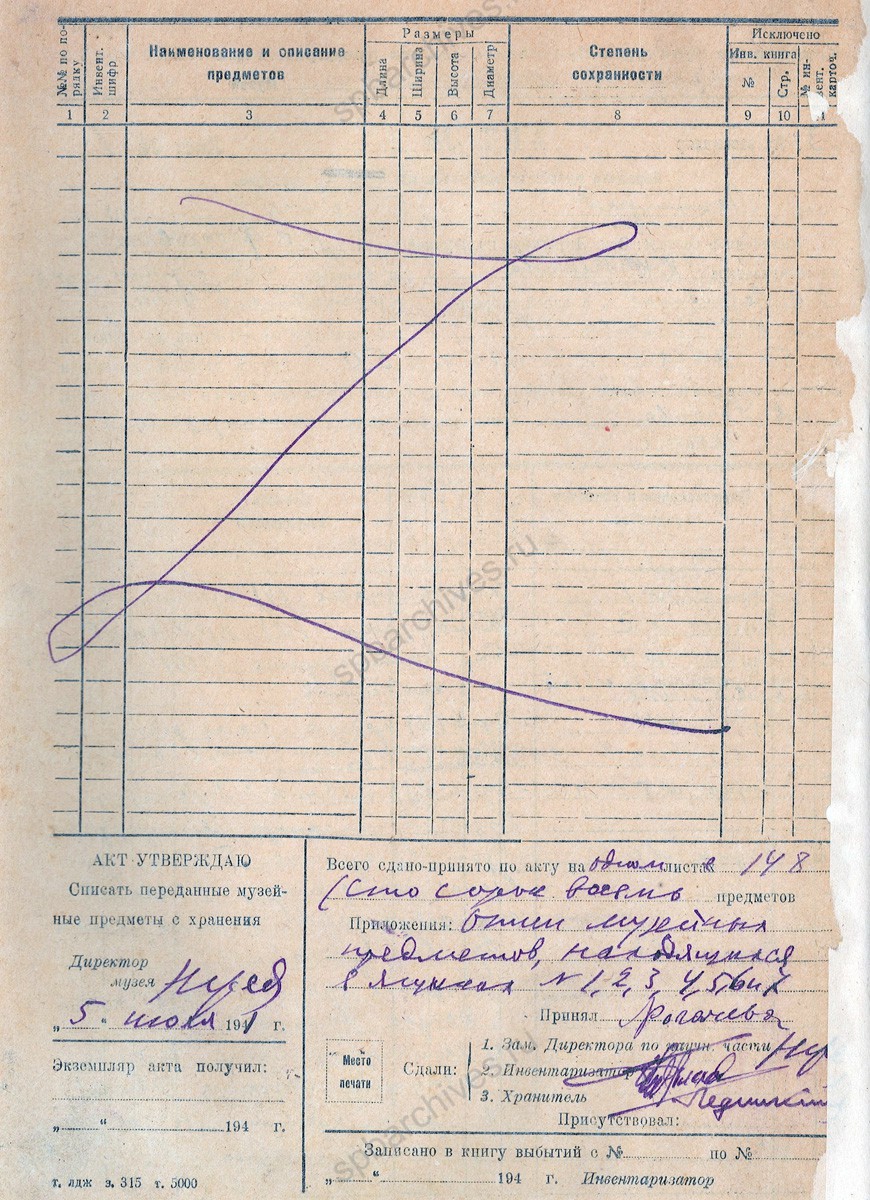 №№ по порядку
Инвент. шифр
Наименование и описание
предметов
Размеры
Длина
Ширина
Высота
Диаметр
Степень
сохранности
Исключено
Инв. книга
№
Стр.
№ ин-
вент.
карточ.
1 2 3 4 5 6 7 8 9 10
АКТ УТВЕРЖДАЮ
Списать переданные музей-
ные предметы с хранения
Директор
музея
„ 5 “ июля 1941 г.
Экземпляр акта получил:
„ “ 194 г.
т. лдж з. 315 т. 5000
Всего сдано-принято по акту на одном листах 148
(сто сорок восемь предметов
Приложения: описи музейных
предметов, находящихся
в ящиках N 1, 2, 3, 4, 5, 6 и 7
Принял Рогачева
Место
печати
Сдали:
1. Зам. Директора по научн. части
2. Инвентаризатор
3. Хранитель
Присутствовал:
Записано в книгу выбытий с № по №
„ “ 194 г. Инвентаризатор
spbarchives.ru
spbarchives.ru
spbarchives.ru